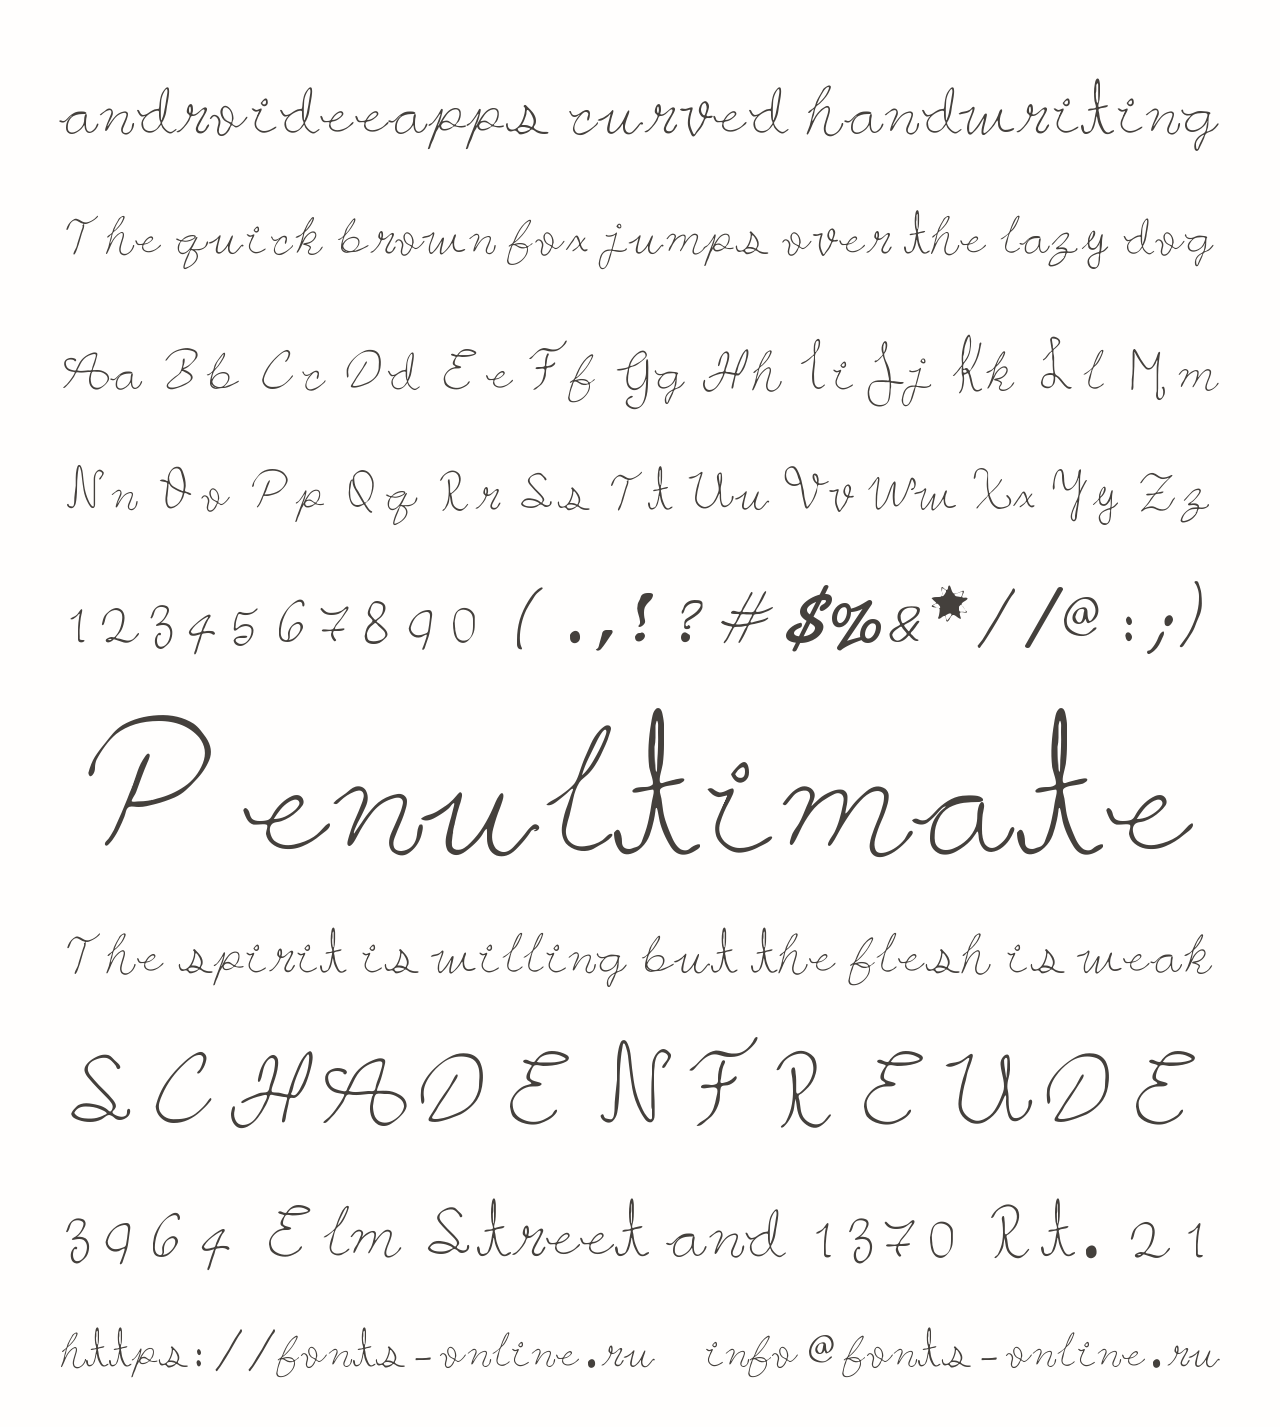 androideeapps curved handwriting
The quick brown fox jumps over the lazy dog
Aa Bb Cc Dd Ee Ff Gg Hh Ii Jj Kk Ll Mm
Nn Oo Pp Qq Rr Ss Tt Uu Vv Ww Xx Yy Zz
1234567890 (.,!?#$%&*//@:;)
Penultimate
The spirit is willing but the flesh is weak
SCHADENFREUDE
3964 Elm Street and 1370 Rt. 21
https://fonts-online.ru info@fonts-online.ru